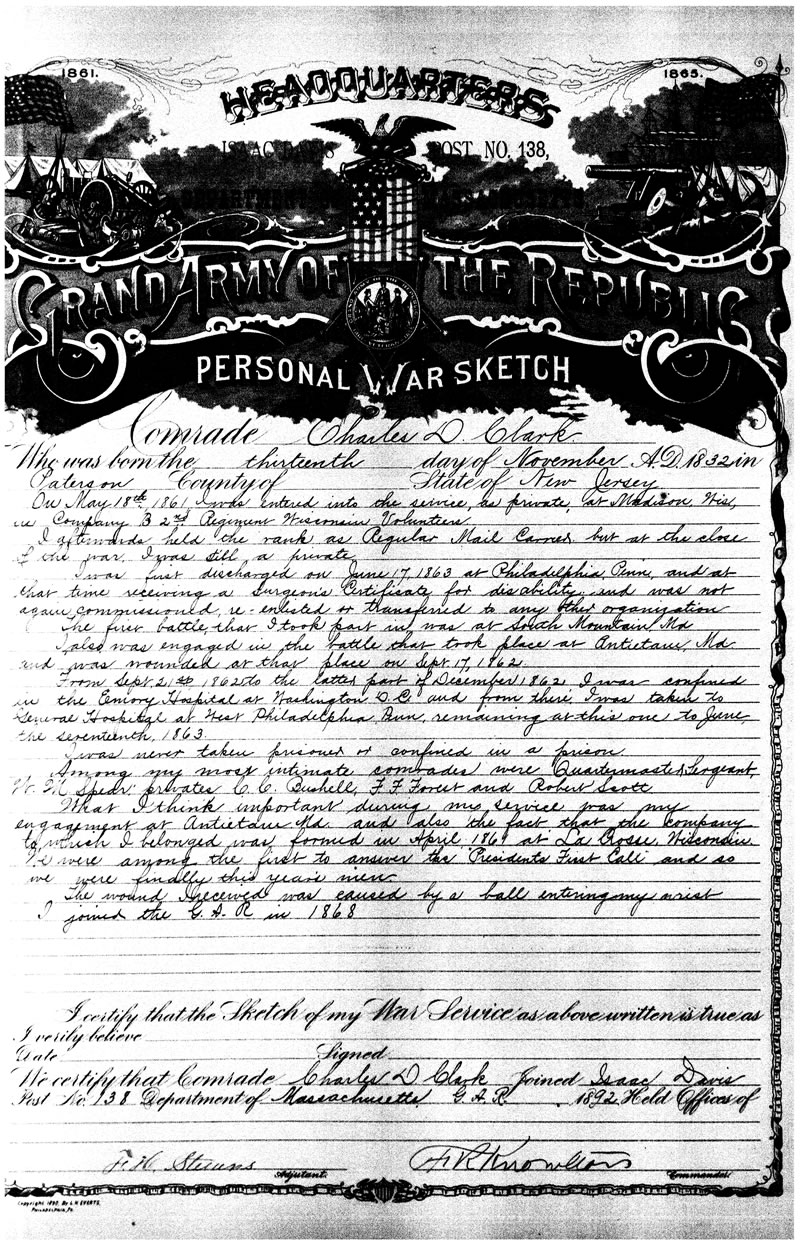 1861.
1865.
HEADQUARTERS
ISAAC DAVIS POST NO. 138,
DEPARTMENT OF MASSACHUSETTS
GRAND ARMY OF THE REPUBLIC
PERSONAL WAR SKETCH
Comrade Charles D. Clark
Who was born the thirteenth day of November A.D. 1832 in
Paterson County of State of New Jersey
On May 18th, 1861 I was entered into the service, as private, at Madison, Wis,
in Company B 2nd Regiment Wisconsin Volunteers.
I afterwards held the rank as Regular Mail Carrier, but at the close
of the war, I was still a private.
I was first discharged on June 17, 1863 at Philadelphia, Penn, and at
that time receiving a Surgeon's Certificate for disability and was not
again commissioned, re-enlisted or transferred to any other organization
The first battle, that I took part in, was at South Mountain, Md
I also was engaged in the battle that took place at Antietam, Md.
and was wounded at that place on Sept. 17, 1862.
From Sept. 21st 1862 to the latter part of December 1862 I was confined
in the Emory Hospital at Washington D.C. and from there, I was taken to
General Hospital at West Philadelphia, Penn, remaining at this one to June,
the seventeenth, 1863.
I was never taken prisoner or confined in a prison.
Among my most intimate comrades were Quartermaster Sergeant,
W. M. Spear, privates C. C. Bushell, F. F. Forest and Robert Scott
What I think important during my service was my
engagement at Antietam Md. and also the fact that the company
to which I belonged was formed in April, 1861 at La Crosse, Wisconsin.
We were among the first to answer the "Presidents First Call" and so
we were finally this years men.
The wound I received was caused by a ball entering my wrist
I joined the G. A. R in 1868
I certify that the Sketch of my War Service as above written is true as
I verily believe
Date Signed
We certify that Comrade Charles D Clark Joined Isaac Davis
Post No. 138 Department of Massachusetts G. A. R. 1892 Held Offices of
F. H. Stevens
F R Knowlton
Adjutant.
Commander
Copyright 1890. By L.H. EVERTS,
PHILADELPHIA, PA.